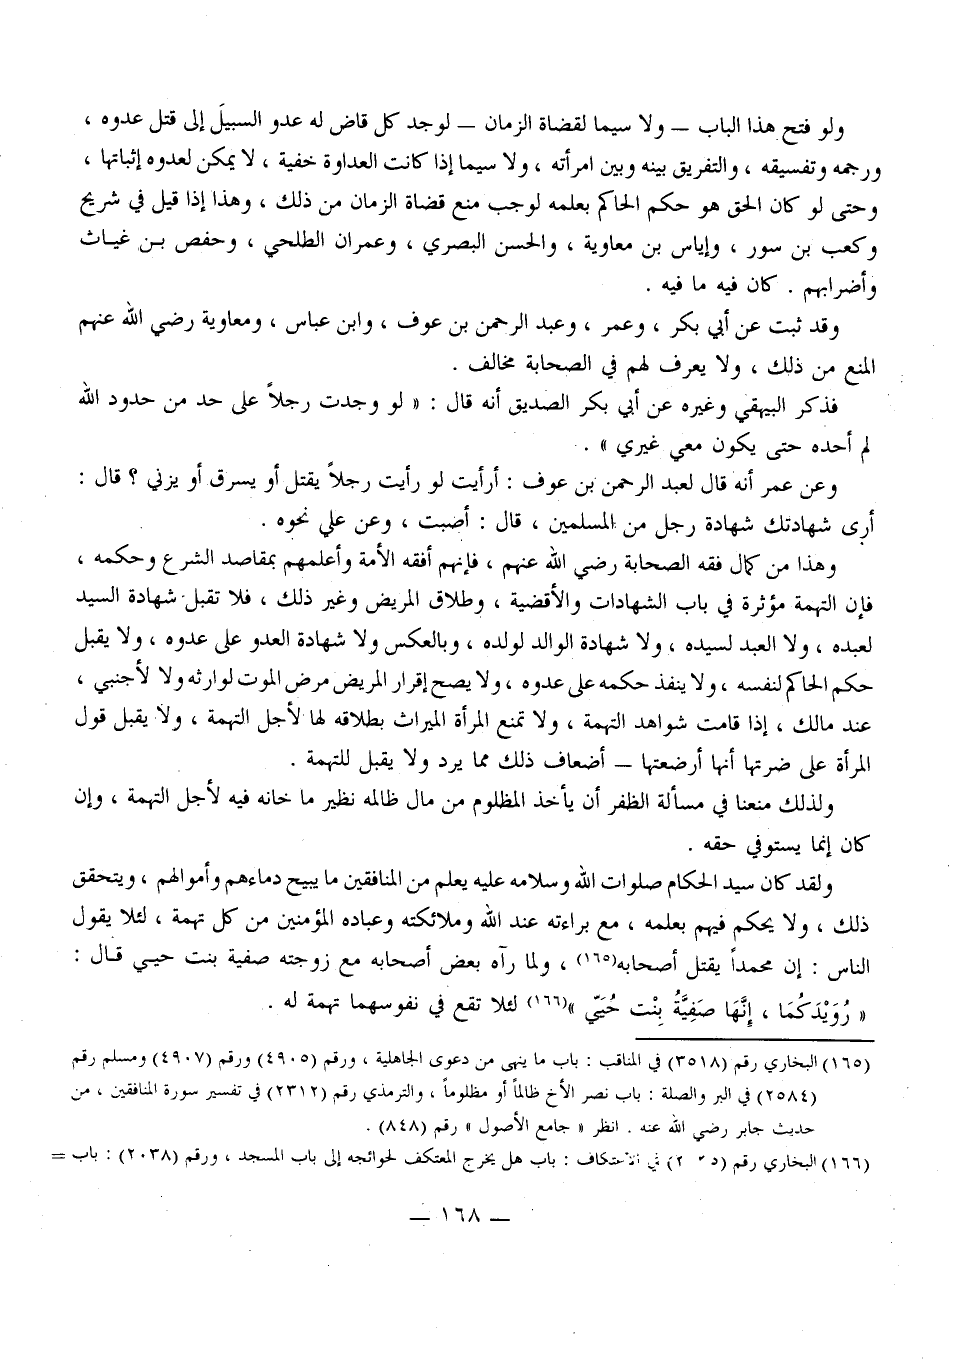 ولو فتح هذا الباب — ولا سيما لقضاة الزمان — لوجد كل قاض له عدو السبيلَ إلى قتل عدوه ،
ورجمه وتفسيقه ، والتفريق بينه وبين امرأته ، ولا سيما إذا كانت العداوة خفية ، لا يمكن لعدوه إثباتها ،
وحتى لو كان الحق هو حكم الحاكم بعلمه لوجب منع قضاة الزمان من ذلك ، وهذا إذا قيل في شريح
وكعب بن سور ، وإياس بن معاوية ، والحسن البصري ، وعمران الطلحي ، وحفص بـن غيـاث
وأضرابهم . كان فيه ما فيه .
وقد ثبت عن أبي بكر ، وعمر ، وعبد الرحمن بن عوف ، وابن عباس ، ومعاوية رضي الله عنهم
المنع من ذلك ، ولا يعرف لهم في الصحابة مخالف .
فذكر البيهقي وغيره عن أبي بكر الصديق أنه قال : « لو وجدت رجلاً على حد من حدود الله
لم أحده حتى يكون معي غيري » .
وعن عمر أنه قال لعبد الرحمن بن عوف : أرأيت لو رأيت رجلاً يقتل أو يسرق أو يزني ؟ قال :
أرى شهادتك شهادة رجل من المسلمين ، قال : أصبت ، وعن علي نحوه .
وهذا من كمال فقه الصحابة رضي الله عنهم ، فإنهم أفقه الأمة وأعلمهم بمقاصد الشرع وحكمه ،
فإن التهمة مؤثرة في باب الشهادات والأقضية ، وطلاق المريض وغير ذلك ، فلا تقبل شهادة السيد
لعبده ، ولا العبد لسيده ، ولا شهادة الوالد لولده ، وبالعكس ولا شهادة العدو على عدوه ، ولا يقبل
حكم الحاكم لنفسه ، ولا ينفذ حكمه على عدوه ، ولا يصح إقرار المريض مرض الموت لوارثه ولا لأجنبي ،
عند مالك ، إذا قامت شواهد التهمة ، ولا تمنع المرأة الميراث بطلاقه لها لأجل التهمة ، ولا يقبل قول
المرأة على ضرتها أنها أرضعتها — أضعاف ذلك مما يرد ولا يقبل للتهمة .
ولذلك منعنا في مسألة الظفر أن يأخذ المظلوم من مال ظالمه نظير ما خانه فيه لأجل التهمة ، وإن
كان إنما يستوفي حقه .
ولقد كان سيد الحكام صلوات الله وسلامه عليه يعلم من المنافقين ما يبيح دماءهم وأموالهم ، ويتحقق
ذلك ، ولا يحكم فيهم بعلمه ، مع براءته عند الله وملائكته وعباده المؤمنين من كل تهمة ، لئلا يقول
الناس : إن محمداً يقتل أصحابه(١٦٥) ، ولما رآه بعض أصحابه مع زوجته صفية بنت حيـي قـال :
« رُوَيْدَكُمَا ، إِنَّهَا صَفِيَّةُ بِنْت حُيَيّ »(١٦٦) لئلا تقع في نفوسهما تهمة له .
(١٦٥) البخاري رقم (٣٥١٨) في المناقب : باب ما ينهى من دعوى الجاهلية ، ورقم (٤٩٠٥) ورقم (٤٩٠٧) ومسلم رقم
(٢٥٨٤) في البر والصلة : باب نصر الأخ ظالماً أو مظلوماً ، والترمذي رقم (٢٣١٢) في تفسير سورة المنافقين ، من
حديث جابر رضي الله عنه . انظر « جامع الأصول » رقم (٨٤٨) .
(١٦٦) البخاري رقم في الاعتكاف : باب هل يخرج المعتكف لحوائجه إلى باب المسجد ، ورقم (٢٠٣٨) : باب =
— ١٦٨ —